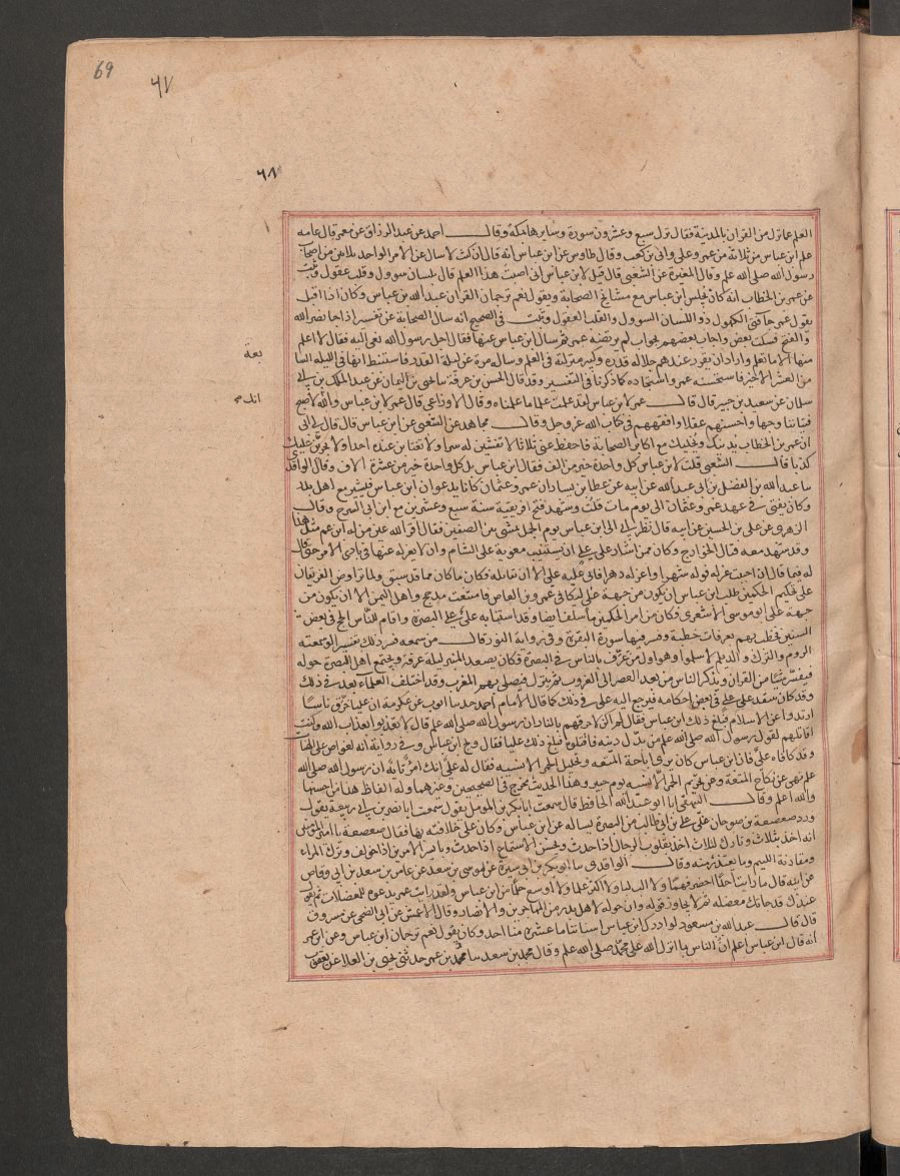 69
٦٧
٦٨
العلم عما نزل من القران بالمدينة فقال نزل سبع وعشرون سورة وسايرها مكة وقال احمد عن عبد الرزاق عن معمر قال عامه
علم ابن عباس من ثلاثة من عمر وعلى وابى بن كعب وقال طاوس عن ابن عباس انه قال ان كنت لاسال عن الامر الواحد ثلاثين من اصحاب
رسول الله صلى الله علم وقال المغيرة عن الشعبى قال قيل لابن عباس انى اصبت هذا العلم قال بلسان سوول وقلب عقول وثبت
عن عمر بن الخطاب انه كان يجلس ابن عباس مع مشايخ الصحابة ويقول نعم ترجمان القران عبد الله بن عباس وكان اذا اقبل
يقول عمر جا فتى الكهول ذو اللسان السوول والقلب العقول وثبت فى الصحيح انه سال الصحابة عن تفسير اذا جا نصر الله
والفتح فسكت بعض واجاب بعضهم بجواب لم يرتضه عمر ثم سال ابن عباس عنها فقال اجل رسول الله نعى اليه فقال لا اعلم
منها الا ما تعلم واراد ان يقرر عندهم جلاله قدره وكبير منزلته فى العلم وساله مرة عن ليلة القدر فاستنبط انها فى الليله السا
بعة
من العشر الاخير فاستحسنه عمر واستجاده كما ذكرنا فى التفسير وقد قال الحسن بن عرفة سا يحيى بن اليمان عن عبد الملك بن ابى
سلمان عن سعيد بن جبير قال قال عمر لابن عباس لقد علمت علما ما علمناه وقال الاوزاعى قال عمر لابن عباس والله لاصبح
فتياننا وجها واحسنهم عقلا وافقههم فى كتاب الله عز وجل وقال مجاهد عن الشعبى عن ابن عباس قال قال لى ابى
ان عمر بن الخطاب يدنيك ويجليك مع اكابر الصحابة فاحفظ عنى ثلاثا لا تفشين له سرا ولا تغتابن عنده احدا ولا يجربن عليك
كذبا قال الشعبى قلت لابن عباس كل واحدة خير من الف فقال ابن عباس بل كل واحدة خير من عشرة الاف وقال الواقدى
سا عبد الله بن الفضل بن ابى عبد الله عن ابيه عن عطا بن يسار ان عمر وعثمان كانا يدعوان ابن عباس فيشير مع اهل بلد
وكان يفتى فى عهد عمر وعثمان الى يوم مات قلت وشهد فتح افريقية سنة سبع وعشرين مع ابن ابى السرح وقال
الزهرى عن على بن الحسين عن ابيه قال نظر ابى الى ابن عباس يوم الجمل يمشى بين الصفين فقال اقر الله عين من له ابن عم مثل هذا
وقد شهد معه قتال الخوارج وكان ممن اشار على على ان يستنيب معوية على الشام وان لا يعزله عنها فى بادى الامر حتى قال
له فيما قال ان احببت عزله فوله شهرا واعزله دهرا فابى عليه على الا ان يقاتله فكان ما كان مما قد سبق ولما تراوض الفريقان
على تحكيم الحكمين طلب ابن عباس ان يكون من جهة على ليكافى عمرو بن العاص فامتنعت مذحج واهل اليمن الا ان يكون من
جهة على ابو موسى الاشعرى فكان من امر الحكمين ما سلف ايضا وقد استنابه على على البصرة واقام للناس الحج فى بعض
السنين فخطب بهم بعرفات خطبة وفسر فيها سورة البقرة وفى رواية النور قال من سمعه فسر ذلك تفسيرا لو سمعته
الروم والترك والديلم لاسلموا وهو اول من عرف بالناس فى البصرة فكان يصعد المنبر ليلة عرفة ويجتمع اهل البصرة حوله
فيفسر شيا من القران ويذكر الناس من بعد العصر الى الغروب ثم ينزل فيصلى بهم المغرب وقد اختلف العلماء بعد فى ذلك
وقد كان ينتقد على على فى بعض احكامه فيرجع اليه على فى ذلك كما قال الامام احمد حدثنا ايوب عن عكرمة ان عليا حرق ناسا
ارتدوا عن الاسلام فبلغ ذلك ابن عباس فقال لم اكن لاحرقهم بالنار ان رسول الله صلى الله علم قال لا تعذبوا بعذاب الله وكنت
اقاتلهم لقول رسول الله صلى الله علم من بدل دينه فاقتلوه فبلغ ذلك عليا فقال ويح ابن عباس وفى رواية انه لغواص على الهنات
وقد كافاه على فان ابن عباس كان يرى اباحة المتعه وتحليل الحمر الانسيه فقال له على انك امرؤ تايه ان رسول الله صلى الله
علم نهى عن نكاح المتعة وعن لحوم الحمر الانسيه يوم خيبر وهذا الحديث مخرج فى الصحيحين وغيرهما وله الفاظ هذا من احسنها
والله اعلم وقال البيهقى ابا ابو عبد الله الحافظ قال سمعت ابا بكر بن المومل يقول سمعت ابا نصر بن ابى ربيعة يقول
ورد صعصعة بن صوحان على على بن ابى طالب من البصرة فساله عن ابن عباس وكان على خلافته بها فقال صعصعة يا امير المومنين
انه اخذ بثلاث وتارك لثلاث اخذ بقلوب الرجال اذا حدث وبحسن الاستماع اذا حدث وبايسر الامرين اذا خولف وترك المراء
ومقارنة الليم وما يعتذر منه وقال الواقدى سا ابو بكر بن ابى سبرة عن موسى بن سعد عن عامر بن سعد بن ابى وقاص
عن ابيه قال ما رايت احدا احضر فهما ولا الب لبا ولا اكثر علما ولا اوسع حلما من ابن عباس ولقد رايت عمر يدعوه للمعضلات ثم يقول
عندك قد جاتك معضله ثم لا يجاوز قوله وان حوله لاهل بدر من المهاجرين والانصار وقال الاعمش عن ابى الضحى عن مسروق
قال قال عبد الله بن مسعود لو ادرك ابن عباس اسناننا ما عشره منا احد وكان يقول نعم ترجمان ابن عباس وعن ابن عمر
انه قال ابن عباس اعلم الناس بما انزل الله على محمد صلى الله علم وقال محمد بن سعد سا محمد بن عمر حدثنى يحيى بن العلا عن يعقوب